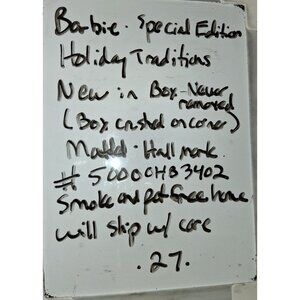 Barbie · Special Edition
Holiday Traditions
New in Box - Never
removed
(Box crushed on corner)
Mattel · Hallmark.
# 50000HB3402
Smoke and pet free home
will ship w/ care
· 27 ·